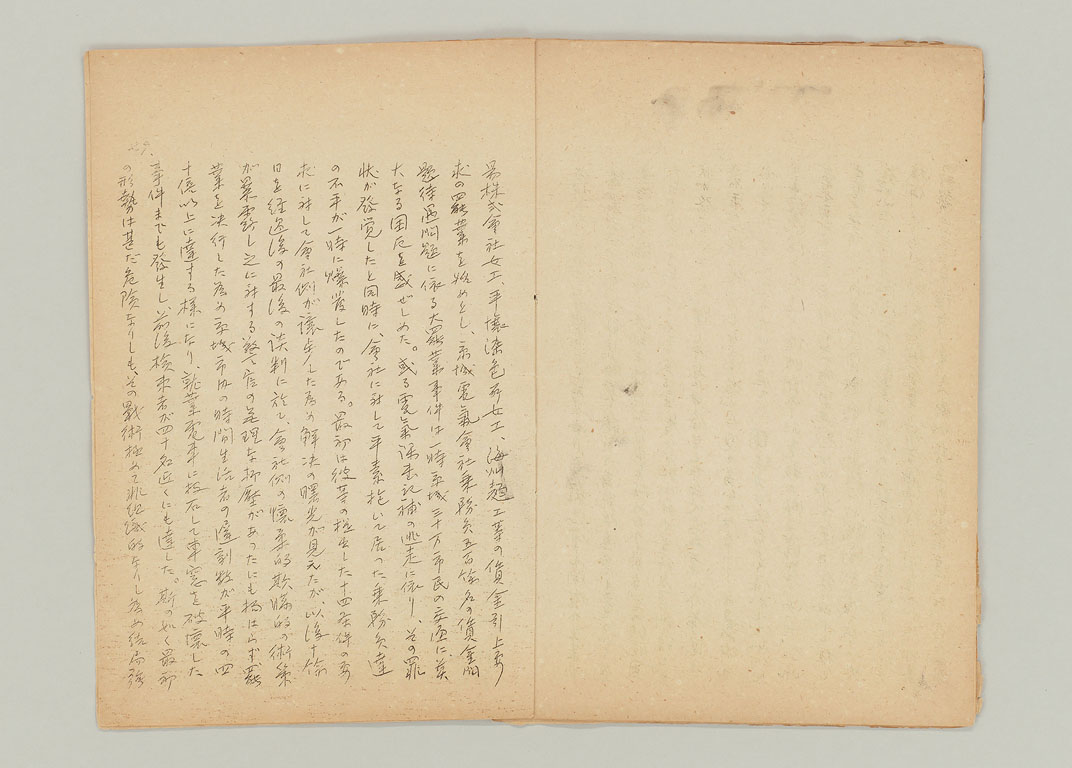 易株式會社女工、平壤染色所女工、海州麵工等の賃金引上要
求の罷業を始めとし、京城電氣會社乘務員五百餘名の賃金問
題待遇問題に依る大罷業事件は一時京城三十万市民の交通に莫
大なる困厄を感ぜしめた。或る電氣課書記補の逃走に依り、その罪
狀が發覚したと同時に、會社に対して平素抱いて居った乘務員達
の不平が一時に爆發したのである。最初は彼等の提出した十四条件の要
求に対して會社側が讓步した為め解決の曙光が見えたが、以後十餘
日を経過後の最後の談判に於て、會社側の懷柔的欺瞞的の術策
が暴露し之に対する警官の無理な抑壓があったにも拘はらず罷
業を決行した為め京城市內の時間生活者の遲刻数が平時の四
十倍以上に達する樣になり、就業電車に投石して車窓を破壞した
事件までも發生し、前後檢束者が四十名近くにも達した。斯の如く最初
の形勢は甚だ危険なりしも、その戰術極めて非組織的なりし為め結局強